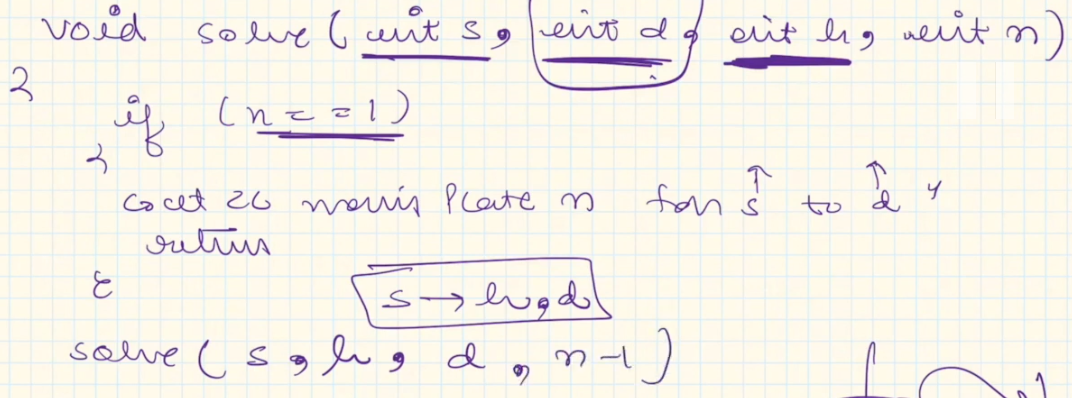 void solve (int s, int d, int h, int n)
{
if (n==1)
{
cout << moving plate n from s to d "
return
}
s → h, d
solve (s, h, d, n-1)